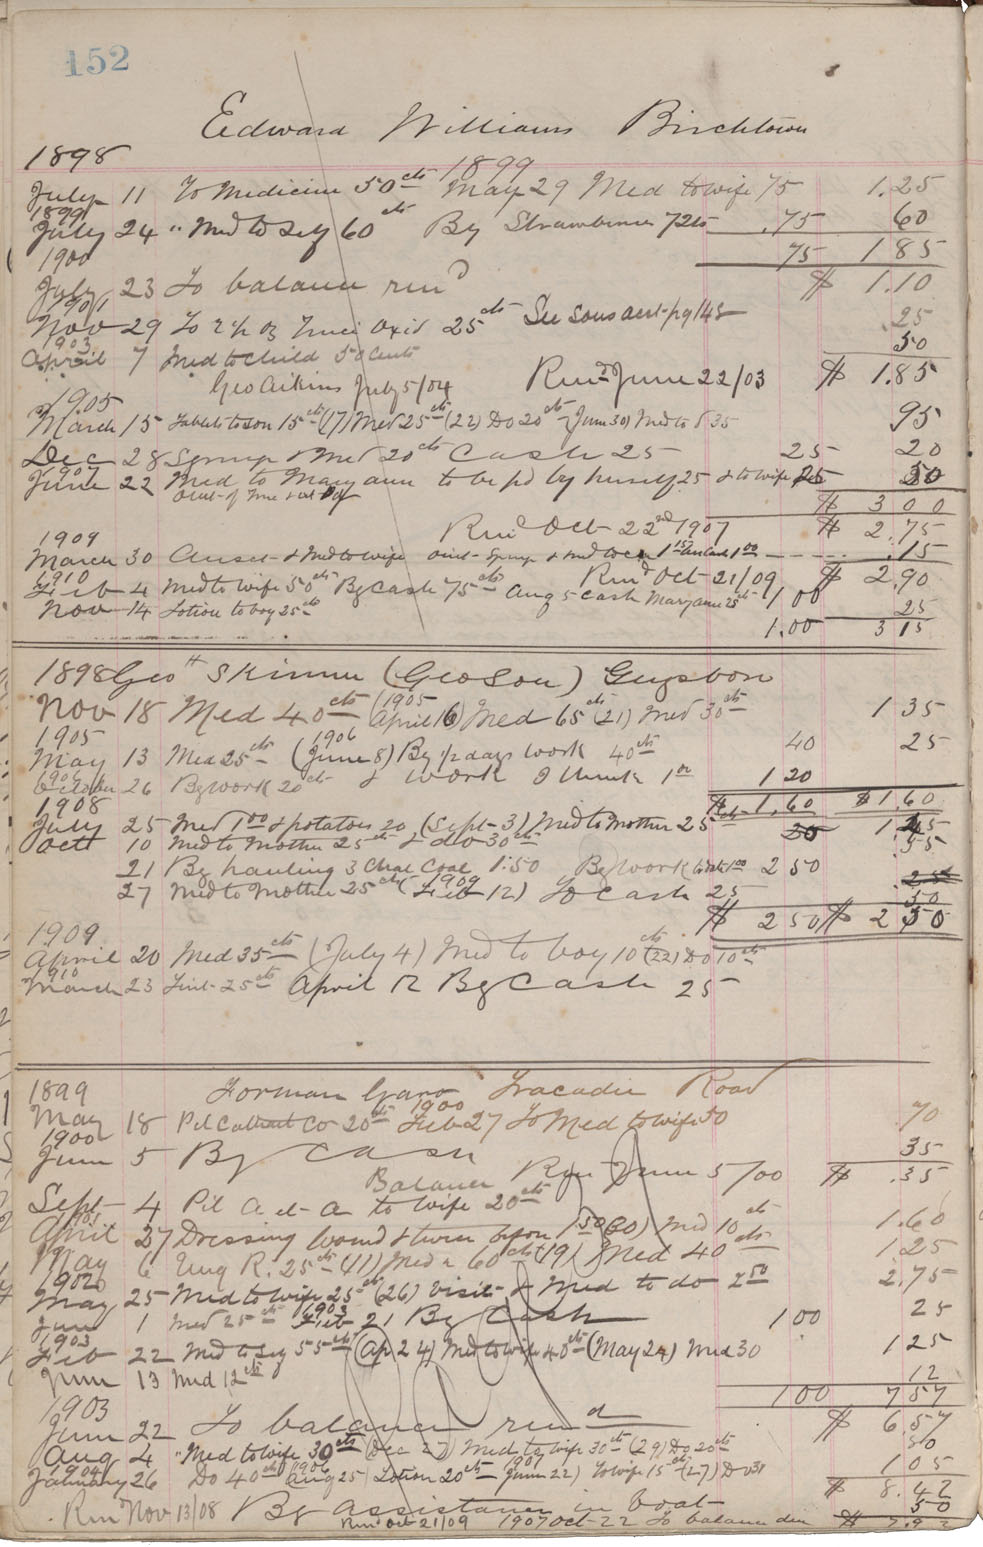 152
Edward Williams Birchtown
1898 1899
July 11 To Medicine 50cts May 29 Med to wife 75 1.25
1899
July 24 " Med to Self 60cts By Strawberries 72ts .75 60
75 1 85
1900
July 23 To balance rend $ 1.10
1901
Nov 29 To oz Zinci Oxid 25cts See Sons acct pg 148 .25
1903
April 7 Med to Child 50 cents 50
Geo Aikins July 5/04 Rend June 22/03 $ 1.85
1905
March 15 Tablets to son 15cts (17) Med 25cts (22) Do 20cts (June 30) Med to 35 95
Dec 28 Syrup & Med 20cts Cash 25 25 20
1907
June 22 Med to Mary ann to be pd by herself 25 & to wife 25 50
$ 3 00
Rend Oct 22nd 1907 $ 2.75
1909
March 30 & Med to wife .15
Rend Oct 21/09 $ 2.90
1910
Feb 4 Med to wife 50cts By Cash 75cts Aug 5 Cash Mary ann 25cts 1 00
Nov 14 Lotion to boy 25cts 25
1.00 3 15
1898 Geo H Skinner (Geo Son) Guysboro
Nov 18 Med 40cts (1905 April 16) Med 65cts (21) Med 30cts 1 35
1905 1906
May 13 Med 25cts (June 8) By 1/2 days work 40cts 40 25
October 26 By work 20cts & work I think 1 00 1 20
$ 1.60 $ 1.60
1908
July 25 Med 1 00 & potatoes 20 (Sept 3) Med to Mother 25cts 20 1 45
Oct 10 Med to Mother 25cts & do 30cts 55
21 By hauling 3 Chal Coal 1.50 By work to date 1 00 2 50
27 Med to Mother 25cts (1909 Feb 12) To Cash 25 50
$ 2 50 $ 2 50
1909
April 20 Med 35cts (July 4) Med to boy 10cts (22) Do 10cts
1910
March 23 Lint 25cts April 12 By Cash 25
1899 Forman Tracadie Road
May 18 Pil Cathart Co 20cts 1900 Feb 27 To Med to wife 50 70
1900
June 5 By Cash 35
Balance Ren June 5/00 $ .35
Sept 4 Pil to wife 20cts
1901
April 27 Dressing wound 1 50 (30) Med 10cts 1.60
May 6 Ung R. 25cts (11) Med 60cts (19) Med 40cts 1.25
1902
May 25 Med to wife 25cts (26) visit & Med to do 2 50 2.75
June 1 Med 25cts 1903 Feb 21 By Cash 1 00 25
1903
Feb 22 Med to Self 55cts (Ap 24) Med to wife 40cts (May 24) Med 30 1 25
June 13 Med 12cts 12
1 00 7 57
1903
June 22 To balance rend $ 6.57
Aug 4 " Med to wife 30cts (Dec 27) Med to wife 30cts (29) Do 20cts 80
1904 1906 1907
January 26 Do 40cts Aug 25 Lotion 20cts June 22) To wife 15cts (27) Do 31 1 05
$ 8.42
Ren Nov 13/08 By assistance in boat 50
Rend Oct 21/09 1907 Oct 22 To balance due $ 7.92